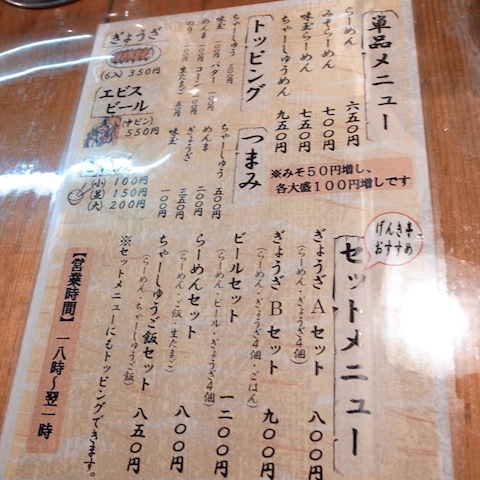 単品メニュー
らーめん 六五〇円
みそらーめん 七〇〇円
味玉らーめん 七五〇円
ちゃーしゅうめん 九五〇円
※みそ50円増し、
各大盛100円増しです
トッピング
ちゃーしゅう
めんま 一〇〇円
味玉 一〇〇円
のり
バター 一〇〇円
コーン
生たまご 五〇円
つまみ
ちゃーしゅう 五〇〇円
めんま 二〇〇円
ぎょうざ 三五〇円
味玉 一〇〇円
ぎょうざ
(6入) 350円
エビス
ビール
(中ビン)
550円
(小) 100円
150円
(大) 200円
げんき亭
おすすめ
セットメニュー
ぎょうざAセット 八〇〇円
(らーめん・ぎょうざ4個)
ぎょうざBセット 九〇〇円
(らーめん・ぎょうざ4個・ごはん)
ビールセット 一二〇〇円
(らーめん・ビール・ぎょうざ4個)
らーめんセット 八〇〇円
(らーめん・ご飯・生たまご)
ちゃーしゅうご飯セット 八五〇円
(らーめん、ちゃーしゅうご飯)
※セットメニューにもトッピングできます。
【営業時間】 一八時〜翌一時